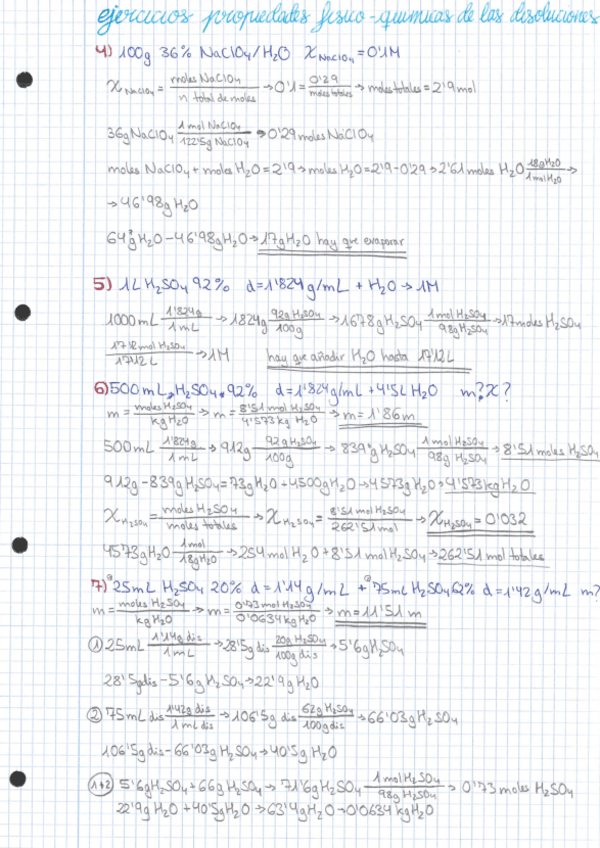 ejercicios propiedades físico-químicas de las disoluciones
4) 100g 36% NaClO₄/H₂O χ NaClO₄ = 0'1M
χ NaClO₄ = moles NaClO₄ / n total de moles → 0'1 = 0'29 / moles totales → moles totales = 2'9 mol
36g NaClO₄ 1 mol NaClO₄ / 122'5g NaClO₄ → 0'29 moles NaClO₄
moles NaClO₄ + moles H₂O = 2'9 → moles H₂O = 2'9 - 0'29 → 2'61 moles H₂O 18g H₂O / 1 mol H₂O →
→ 46'98g H₂O
64g H₂O - 46'98g H₂O → 17g H₂O hay que evaporar
5) 1L H₂SO₄ 92% d=1'824g/mL + H₂O → 1M
1000mL 1'824g / 1mL → 1824g 92g H₂SO₄ / 100g → 1678g H₂SO₄ 1 mol H₂SO₄ / 98g H₂SO₄ → 17 moles H₂SO₄
17'12 mol H₂SO₄ / 17'12L → 1M hay que añadir H₂O hasta 17'12L
6) 500mL H₂SO₄ 92% d=1'824g/mL + 4'5L H₂O m? χ?
m = moles H₂SO₄ / kg H₂O → m = 8'51 mol H₂SO₄ / 4'573 kg H₂O → m = 1'86m
500mL 1'824g / 1mL → 912g 92g H₂SO₄ / 100g → 839g H₂SO₄ 1 mol H₂SO₄ / 98g H₂SO₄ → 8'51 moles H₂SO₄
912g - 839g H₂SO₄ = 73g H₂O + 4500g H₂O → 4573g H₂O → 4'573 kg H₂O
χ H₂SO₄ = moles H₂SO₄ / moles totales → χ H₂SO₄ = 8'51 mol H₂SO₄ / 262'51 mol → χ H₂SO₄ = 0'032
4573g H₂O 1mol / 18g H₂O → 254 mol H₂O + 8'51 mol H₂SO₄ → 262'51 mol totales
7) 25mL H₂SO₄ 20% d=1'14g/mL + 75mL H₂SO₄ 62% d=1'42g/mL m?
m = moles H₂SO₄ / kg H₂O → m = 0'73 mol H₂SO₄ / 0'0634 kg H₂O → m = 11'51 m
① 25mL 1'14g dis / 1mL → 28'5g dis 20g H₂SO₄ / 100g dis → 5'6g H₂SO₄
28'5g dis - 5'6g H₂SO₄ → 22'9g H₂O
② 75mL dis 1'42g dis / 1mL dis → 106'5g dis 62g H₂SO₄ / 100g dis → 66'03g H₂SO₄
106'5g dis - 66'03g H₂SO₄ → 40'5g H₂O
1+2 5'6g H₂SO₄ + 66g H₂SO₄ → 71'6g H₂SO₄ 1 mol H₂SO₄ / 98g H₂SO₄ → 0'73 moles H₂SO₄
22'9g H₂O + 40'5g H₂O → 63'4g H₂O → 0'0634 kg H₂O